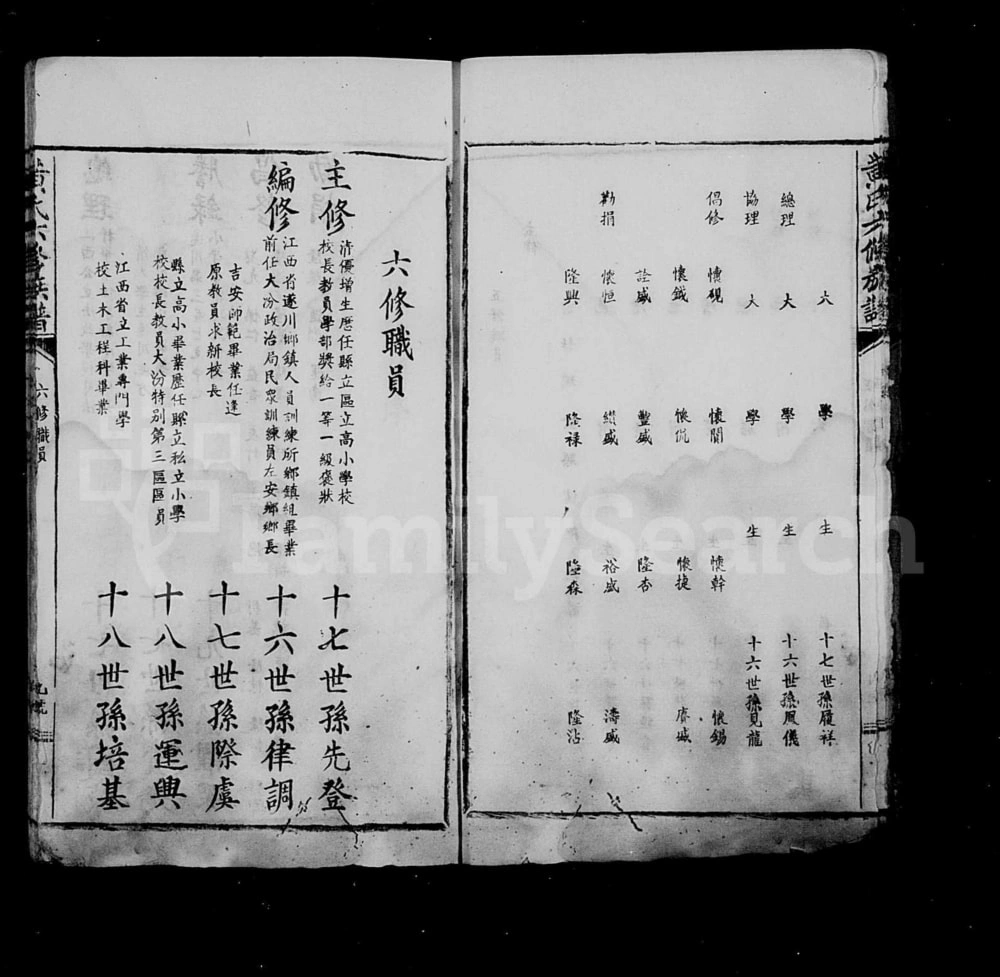 黄氏六修族譜
六學生 十七世孫履祥
總理 大學生 十六世孫鳳儀
協理 大學生 十六世孫見龍
倡修 懷硯 懷閣 懷幹 懷錫
懷鉞 懷侃 懷捷 賡盛
詮盛 豐盛 隆杏
勸捐 懷恒 纉盛 裕盛 濤盛
隆興 隆祿 隆森 隆沾
六修職員
主修 清優增生歷任縣立區立高小學校
校長教員學部獎給一等一級褒狀
十七世孫先登
編修 江西省遂川鄉鎮人員訓練所鄉鎮組畢業
前任大汾政治局民眾訓練員左安鄉鄉長
十六世孫律調
吉安師範畢業任逢
原教員求新校長
十七世孫際虞
縣立高小畢業歷任縣立私立小學
校校長教員大汾特別第三區區員
十八世孫運興
江西省立工業專門學
校土木工程科畢業
十八世孫培基
黄氏六修族譜
六修職員
FamilySearch